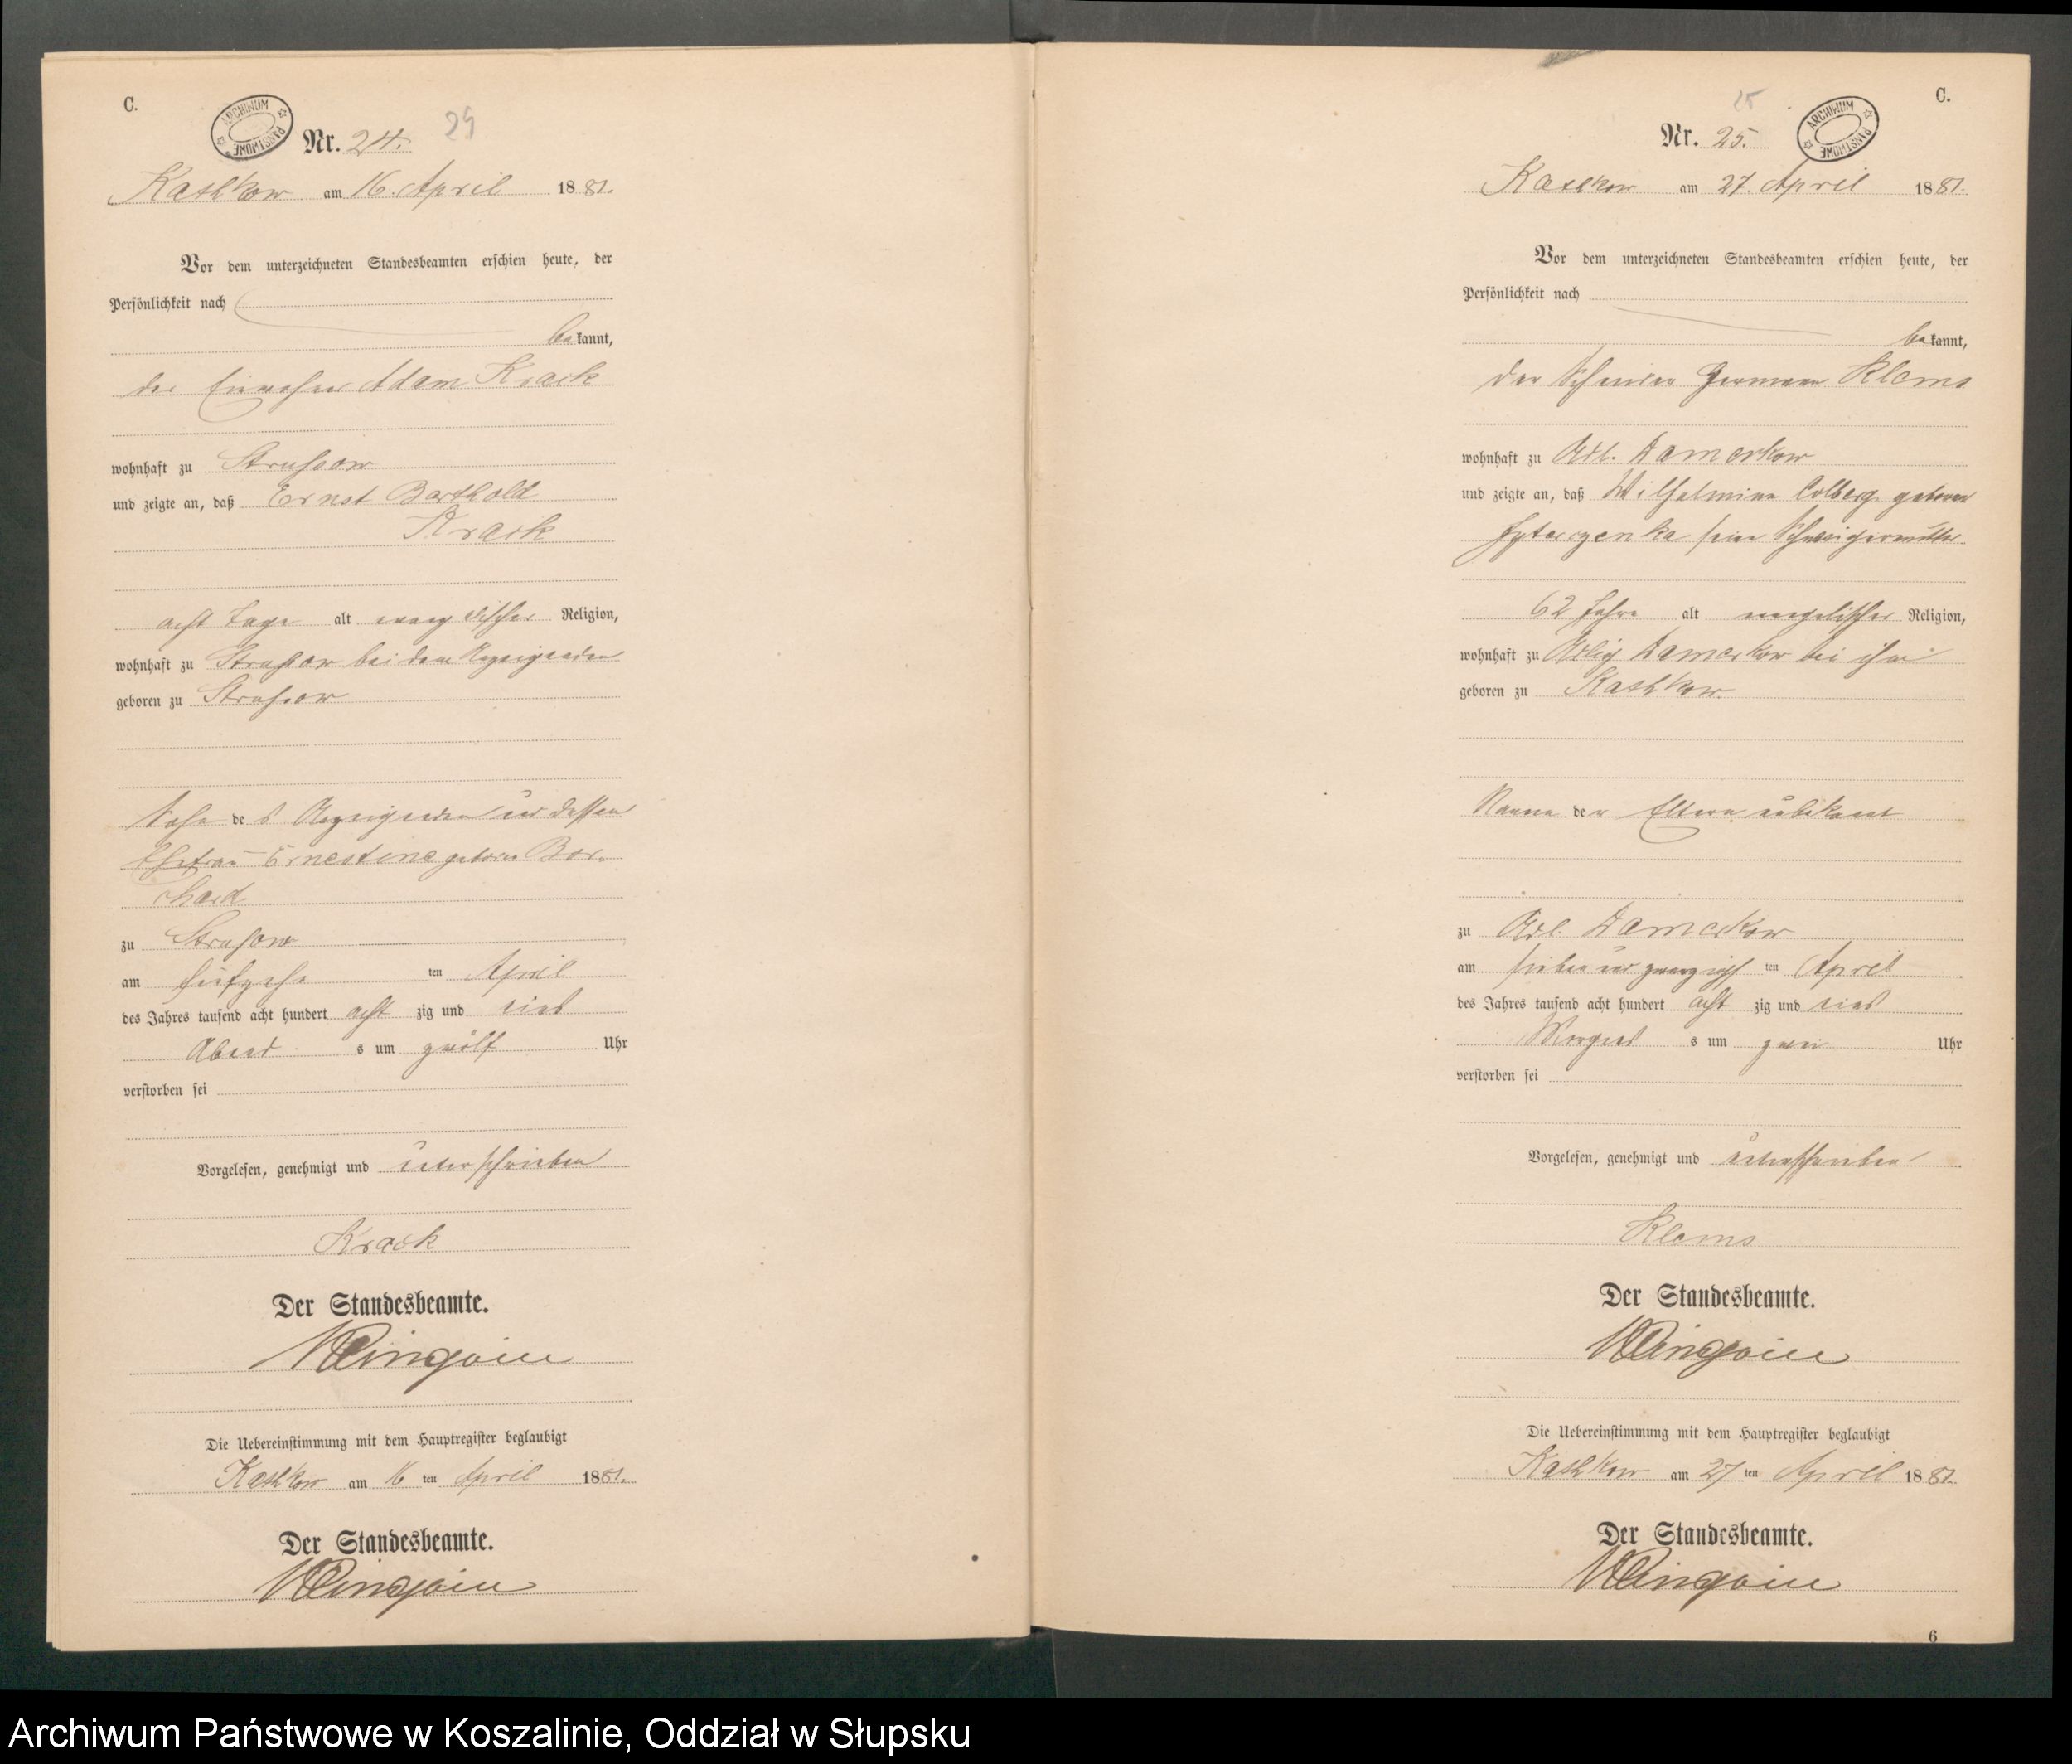 C.
ARCHIWUM PAŃSTWOWE
Nr. 24. 29
Kathkow am 16. April 1881.
Vor dem unterzeichneten Standesbeamten erschien heute, der
Persönlichkeit nach
bekannt,
der Einwohner Adam Krack
wohnhaft zu Strussow
und zeigte an, daß Ernst Barthold
Krack
acht Tage alt evangelischer Religion,
wohnhaft zu Strussow bei dem Anzeigenden
geboren zu Strussow
Sohn des Anzeigenden und dessen
Ehefrau Ernestine geborne Bor-
chard
zu Strussow
am fünfzehn ten April
des Jahres tausend acht hundert acht zig und eins
Abend s um zwölf Uhr
verstorben sei
Vorgelesen, genehmigt und unterschrieben
Krack
Der Standesbeamte.
Die Uebereinstimmung mit dem Hauptregister beglaubigt
Kathkow am 16 ten April 1881.
Der Standesbeamte.
C.
25
Nr. 25.
ARCHIWUM PAŃSTWOWE
Kathkow am 27. April 1881.
Vor dem unterzeichneten Standesbeamten erschien heute, der
Persönlichkeit nach
bekannt,
der Herrmann Klems
wohnhaft zu Adl. Damerkow
und zeigte an, daß Wilhelmine Colberg geborne
seine Schwiegermutter
62 Jahre alt evangelischer Religion,
wohnhaft zu Adlig Damerkow bei ihm
geboren zu Kathkow.
Namen der Eltern unbekannt
zu Adl. Damerkow
am sieben und zwanzigs ten April
des Jahres tausend acht hundert acht zig und eins
Morgens s um zwei Uhr
verstorben sei
Vorgelesen, genehmigt und unterschrieben
Klems
Der Standesbeamte.
Die Uebereinstimmung mit dem Hauptregister beglaubigt
Kathkow am 27 ten April 1881.
Der Standesbeamte.
6
Archiwum Państwowe w Koszalinie, Oddział w Słupsku